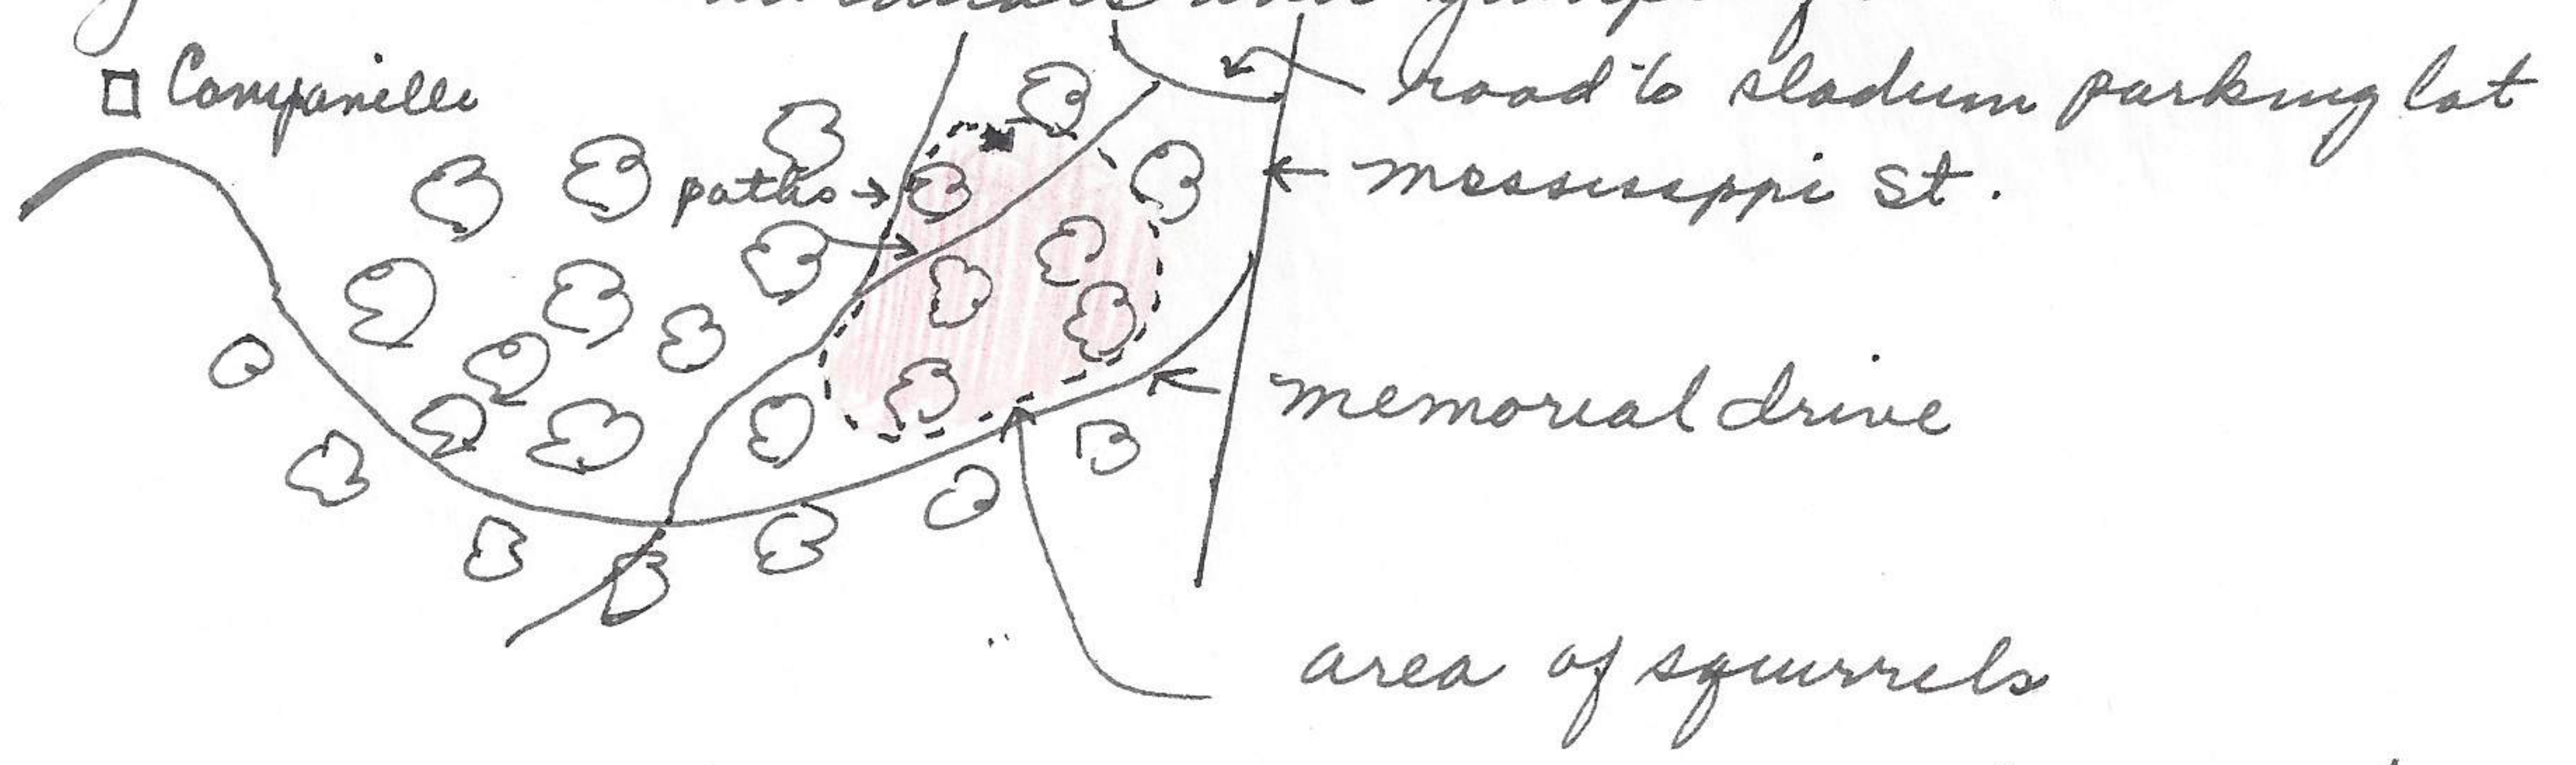 Campanille
road to stadium parking lot
paths
Mississippi St.
memorial drive
area of squirrels